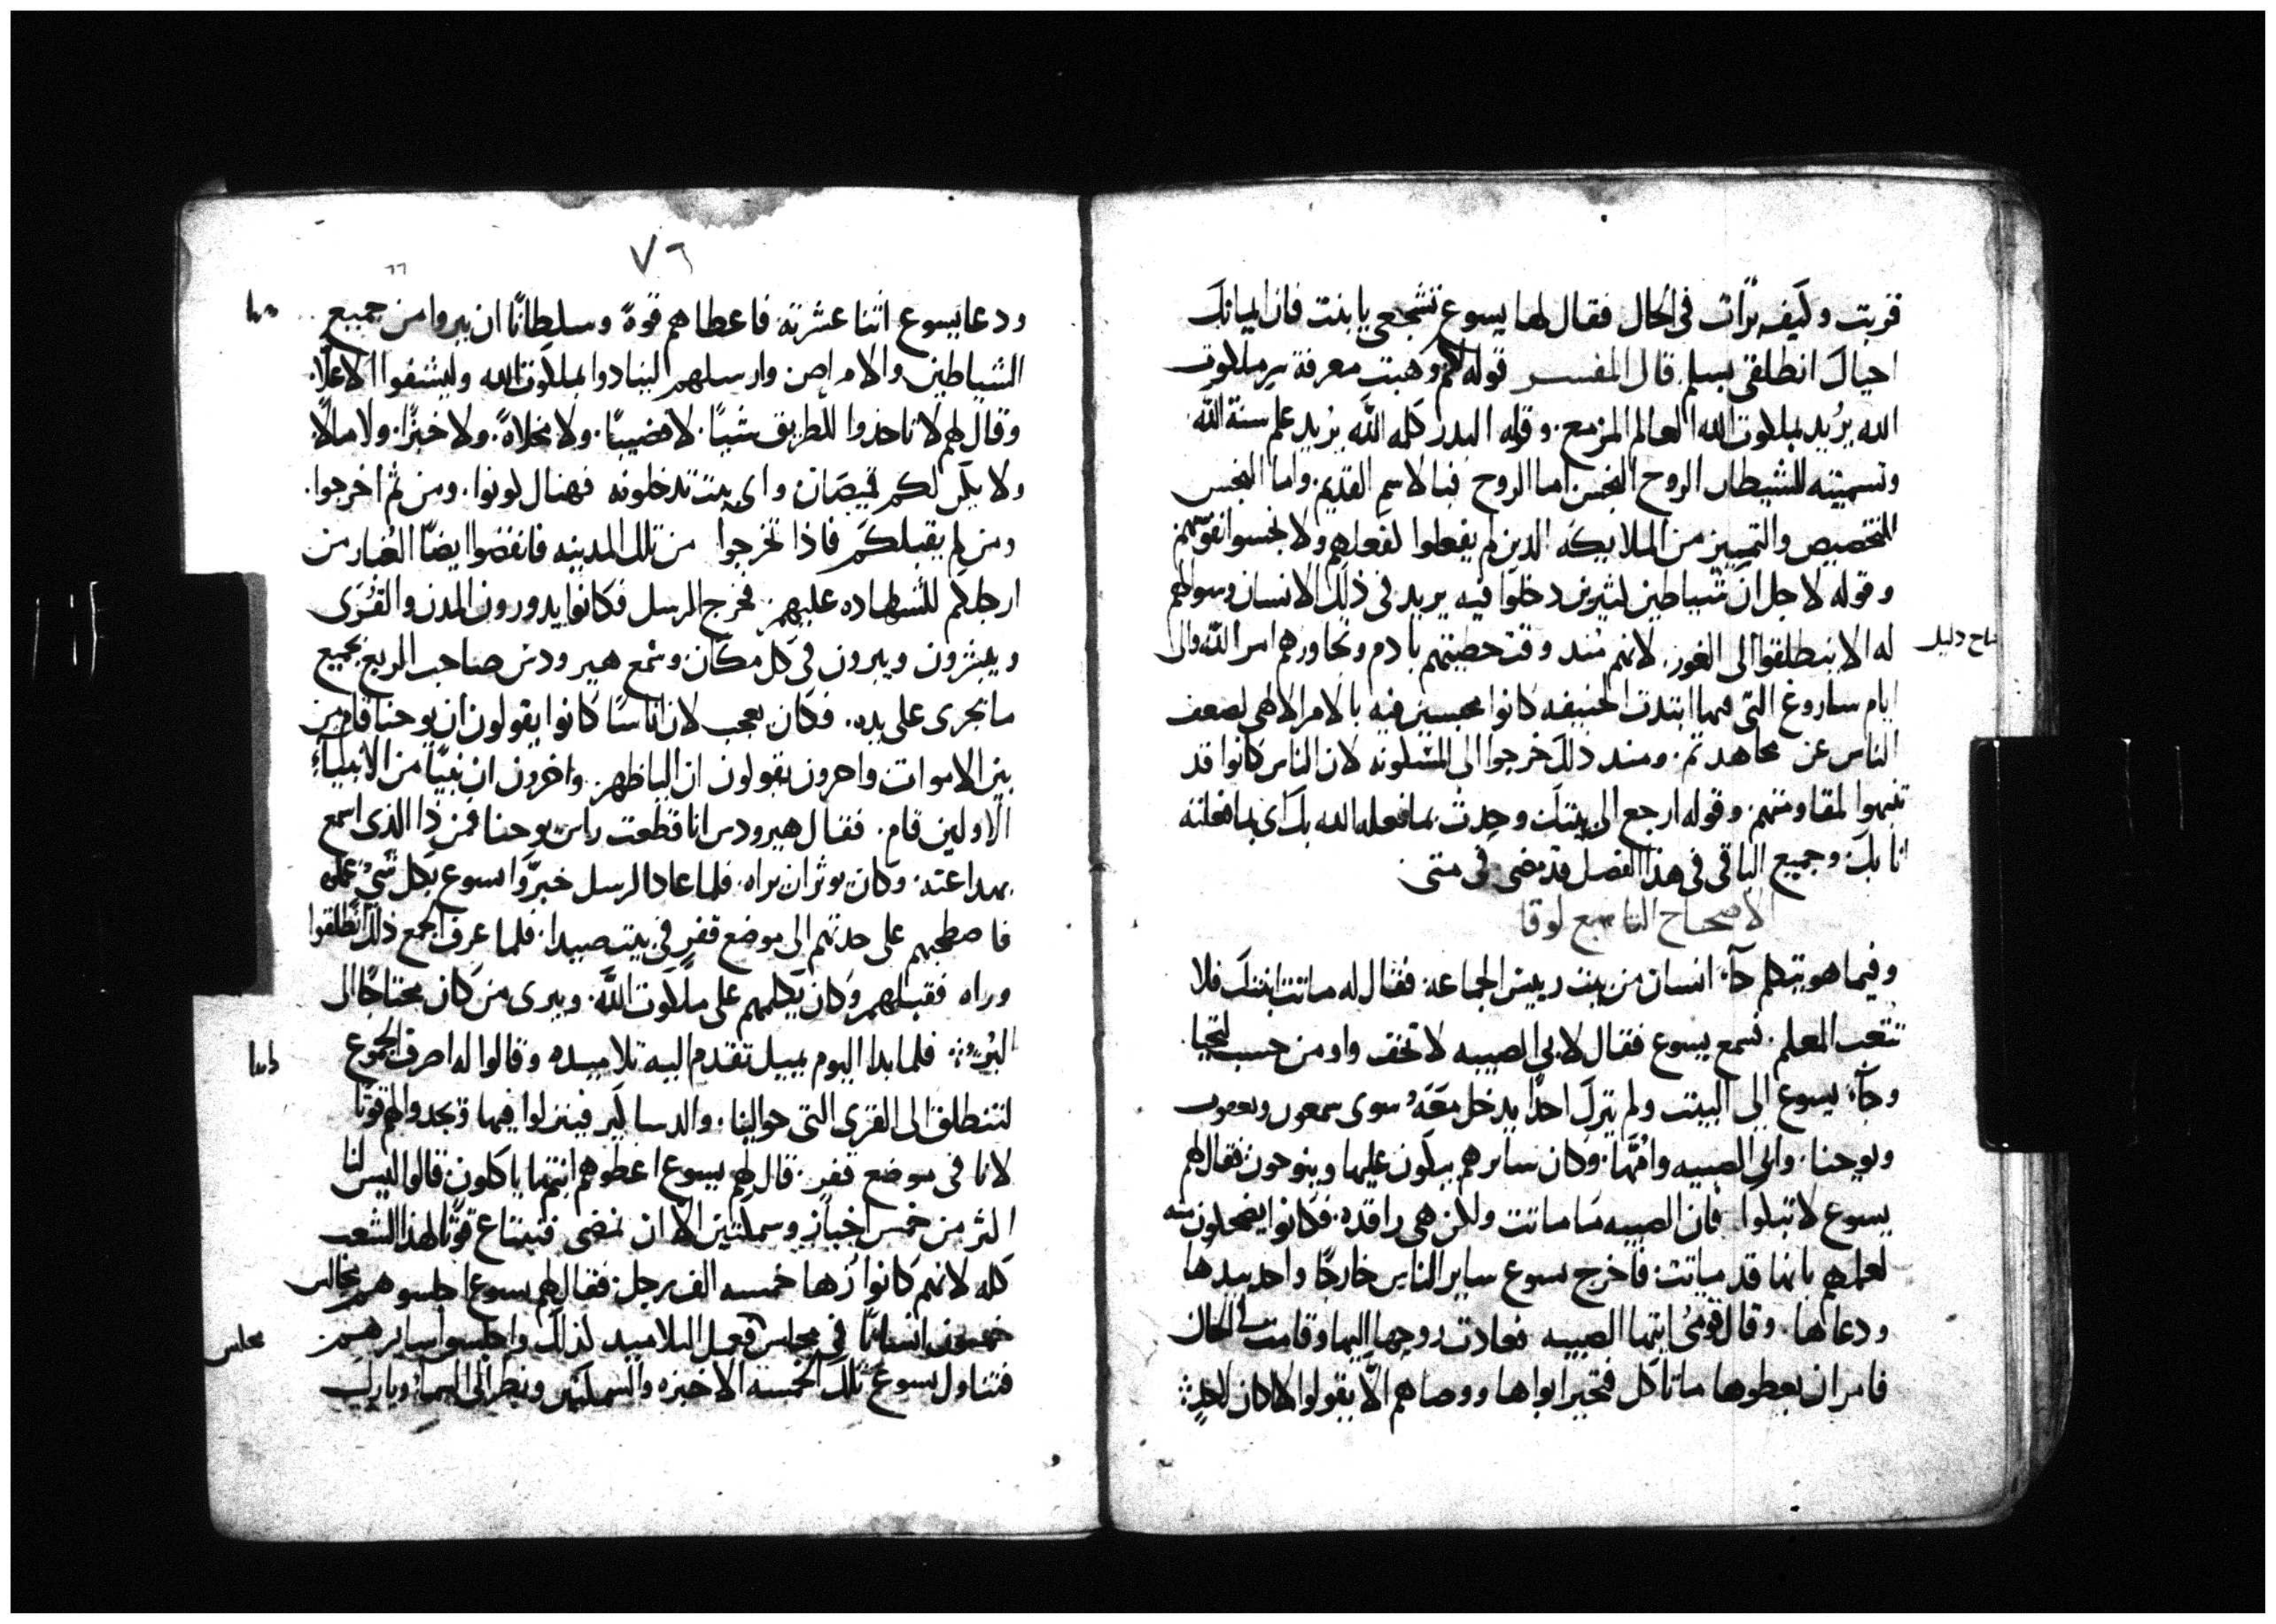 قربت وكيف برأت في الحال فقال لها يسوع تشجعي يا بنت فان ايمانك
احياك انطلقي بسلم قال المفسر قوله لكم وهبت معرفة سر ملكوت
الله يريد بملكوت الله العالم المزمع. وقوله البدر كلمه الله يريد علم سنة الله
وتسميته للشيطان الروح النجس اما الروح فبالاسم القديم. واما النجس
للتخصيص والتمييز من الملايكه الدين لم يفعلوا لفعلهم ولا نجسوا نفوسهم
وقوله لاجل ان شياطين كثيرين دخلوا فيه يريد في ذلك الانسان وسوالهم
له الا ينطلقوا الى الغور. لانهم مند وقت خطيتهم بادم وتجاورهم امر الله والى
ايام ساروغ التي فيها ابتدت الحنيفه كانوا محبسين فيه بالامر الالاهي لضعف
الناس عن مجاهدتهم. ومند دلك خرجوا الى المسكونه لان الناس كانوا قد
تنبهوا لمقاومتهم وقوله ارجع الى بيتك وحدث بما فعله الله بك اى ما فعلته
انا بك. وجميع الباقي في هذا الفصل قد مضى في متى
الاصحاح التاسع لوقا
وفيما هو يتكلم جآ انسان من بيت رييس الجماعه. فقال له ماتت ابنتك فلا
تتعب المعلم. فسمع يسوع فقال لابي الصبيه لا تخف وامن حسب لتحيا.
وجآ يسوع الى البيت ولم يترك احدًا يدخل معه سوى سمعون ويعقوب
ويوحنا. وابي الصبيه وامّها. وكان سايرهم يبكون عليها وينوحون فقال لهم
يسوع لا تبكوا فان الصبيه ما ماتت ولكن هي راقده. فكانوا يضحكون منه
لعلمهم بانها قد ماتت. فاخرج يسوع ساير الناس خارجًا واخد بيدها
ودعاها. وقال قومي ايتها الصبيه فعادت روحها اليها وقامت في الحال
فامر ان يعطوها ما تاكل فتحير ابواها ووصاهم الّا يقولوا ما كان لاحدٍ
٧٦
ودعا يسوع اثنا عشرته فاعطاهم قوةً وسلطانًا ان يبروا من جميع
الشياطين والامراض وارسلهم لينادوا بملكوت الله وليشفوا الاعلّاء
وقال لهم لا تاخدوا للطريق شيًا. لا قضيبًا. ولا مخلاةً. ولا خبزًا. ولا مالًا
ولا يكن لكم قميصان واى بيت تدخلونه فهناك كونوا. ومن ثم اخرجوا.
ومن لم يقبلكم فاذا تخرجوا من تلك المدينه فانفضوا ايضًا الغبار من
ارجلكم للشهاده عليهم. فخرج الرسل فكانوا يدورون المدن والقرى
ويبشرون ويبرون في كل مكان وسمع هيرودس صاحب الربع بجميع
ما يجرى على يده. فكان يعجب لان اناسًا كانوا يقولون ان يوحنا قام من
بين الاموات واخرون يقولون ان اليا ظهر. واخرون ان نبيًا من الانبياء
الاولين قام. فقال هيرودس انا قطعت راس يوحنا فمن ذا الذى اسمع
بهدا عنه. وكان يوثر ان يراه. فلما عاد الرسل خبروا يسوع بكل شي عملوه
فاصطحبهم على حدتهم الى موضع قفر في بيت صيدا. فلما عرف الجمع ذلك انطلقوا
وراه فقبلهم وكان يكلمهم على ملكوت الله. ويبرى من كان محتاجًا الى
البُرء. فلما بدا اليوم يميل تقدم اليه تلاميده وقالوا له اصرف الجموع
لتنطلق الى القرى التي حوالينا. والدساكير فينزلوا فيها وتجدوا لهم قوتًا
لانا في موضع قفر. قال لهم يسوع اعطوهم انتم ما ياكلون. قالوا ليس لنا
اكثر من خمس اخباز وسمكتين الا ان نمضي فنبتاع قوتًا لهذا الشعب
كله لانهم كانوا زها خمسه الف رجل. فقال لهم يسوع اجلسوهم مجالس
خمسون انسانًا في مجلس ففعل التلاميد كذلك واجلسوا سايرهم
فتناول يسوع تلك الخمسه الاخبزه والسمكتين ونظر الى السماء وبارك
مجلس